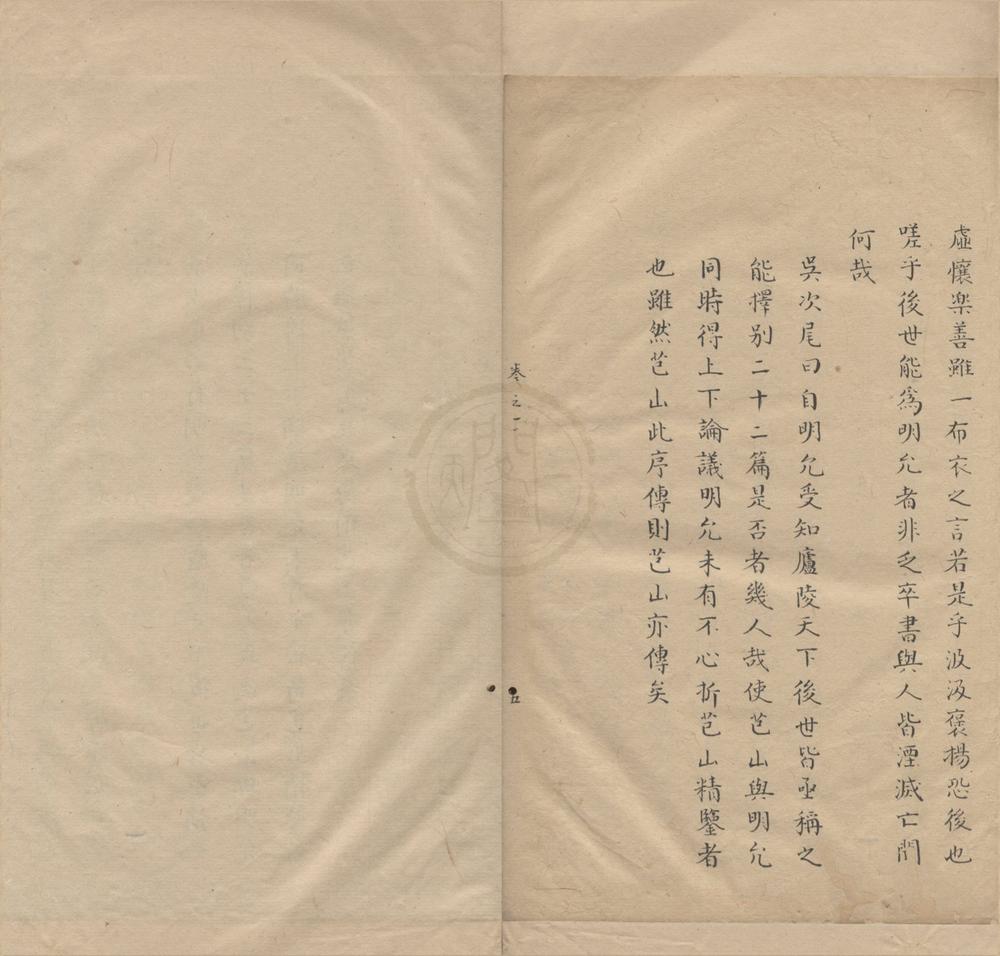 虛懷樂善雖一布衣之言若是乎汲汲褒揚恐後也
嗟乎後世能爲明允者非乏卒書與人皆湮滅亡聞
何哉
吳次尾曰自明允受知廬陵天下後世皆亟稱之
能擇別二十二篇是否者幾人哉使芑山與明允
同時得上下論議明允未有不心折芑山精鑒者
也雖然芑山此序傳則芑山亦傳矣
卷之二
五